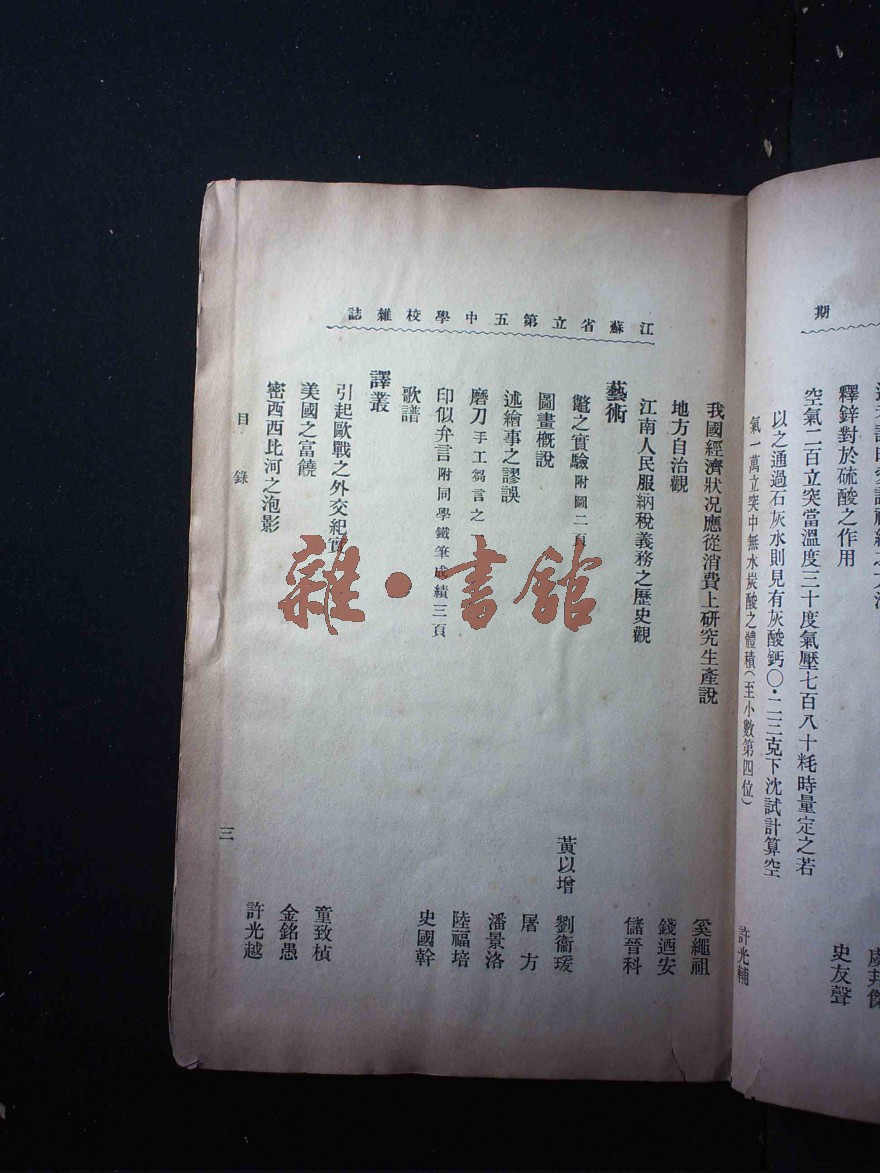 期
釋鋅對於硫酸之作用 史友聲
空氣二百立突當溫度三十度氣壓七百八十粍時量定之若
以之通過石灰水則見有灰酸鈣〇·二三克下沈試計算空
氣一萬立突中無水炭酸之體積(至小數第四位) 許光輔
江蘇省立第五中學校雜誌
我國經濟狀况應從消費上研究生產說 奚繩祖
地方自治觀 錢迺安
江南人民服納稅義務之歷史觀 儲晉科
藝術
鼈之實驗附圖二頁 黃以增 劉衞瑗
圖畫概說 屠方
述繪事之謬誤 潘景洛
磨刀手工芻言之一 陸福培
印似弁言附同學鐵筆成績三頁 史國幹
歌譜
譯叢
引起歐戰之外交紀實 童致楨
美國之富饒 金銘愚
密西西比河之泡影 許光越
目錄
三
雜·書館